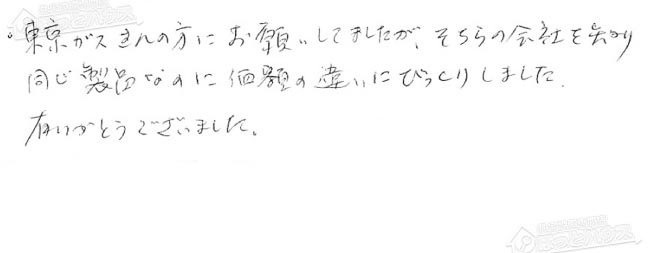 。東京ガスさんの方にお願いしてましたが、そちらの会社を知り
同じ製品なのに価額の違いにびっくりしました。
有りがとうございました。